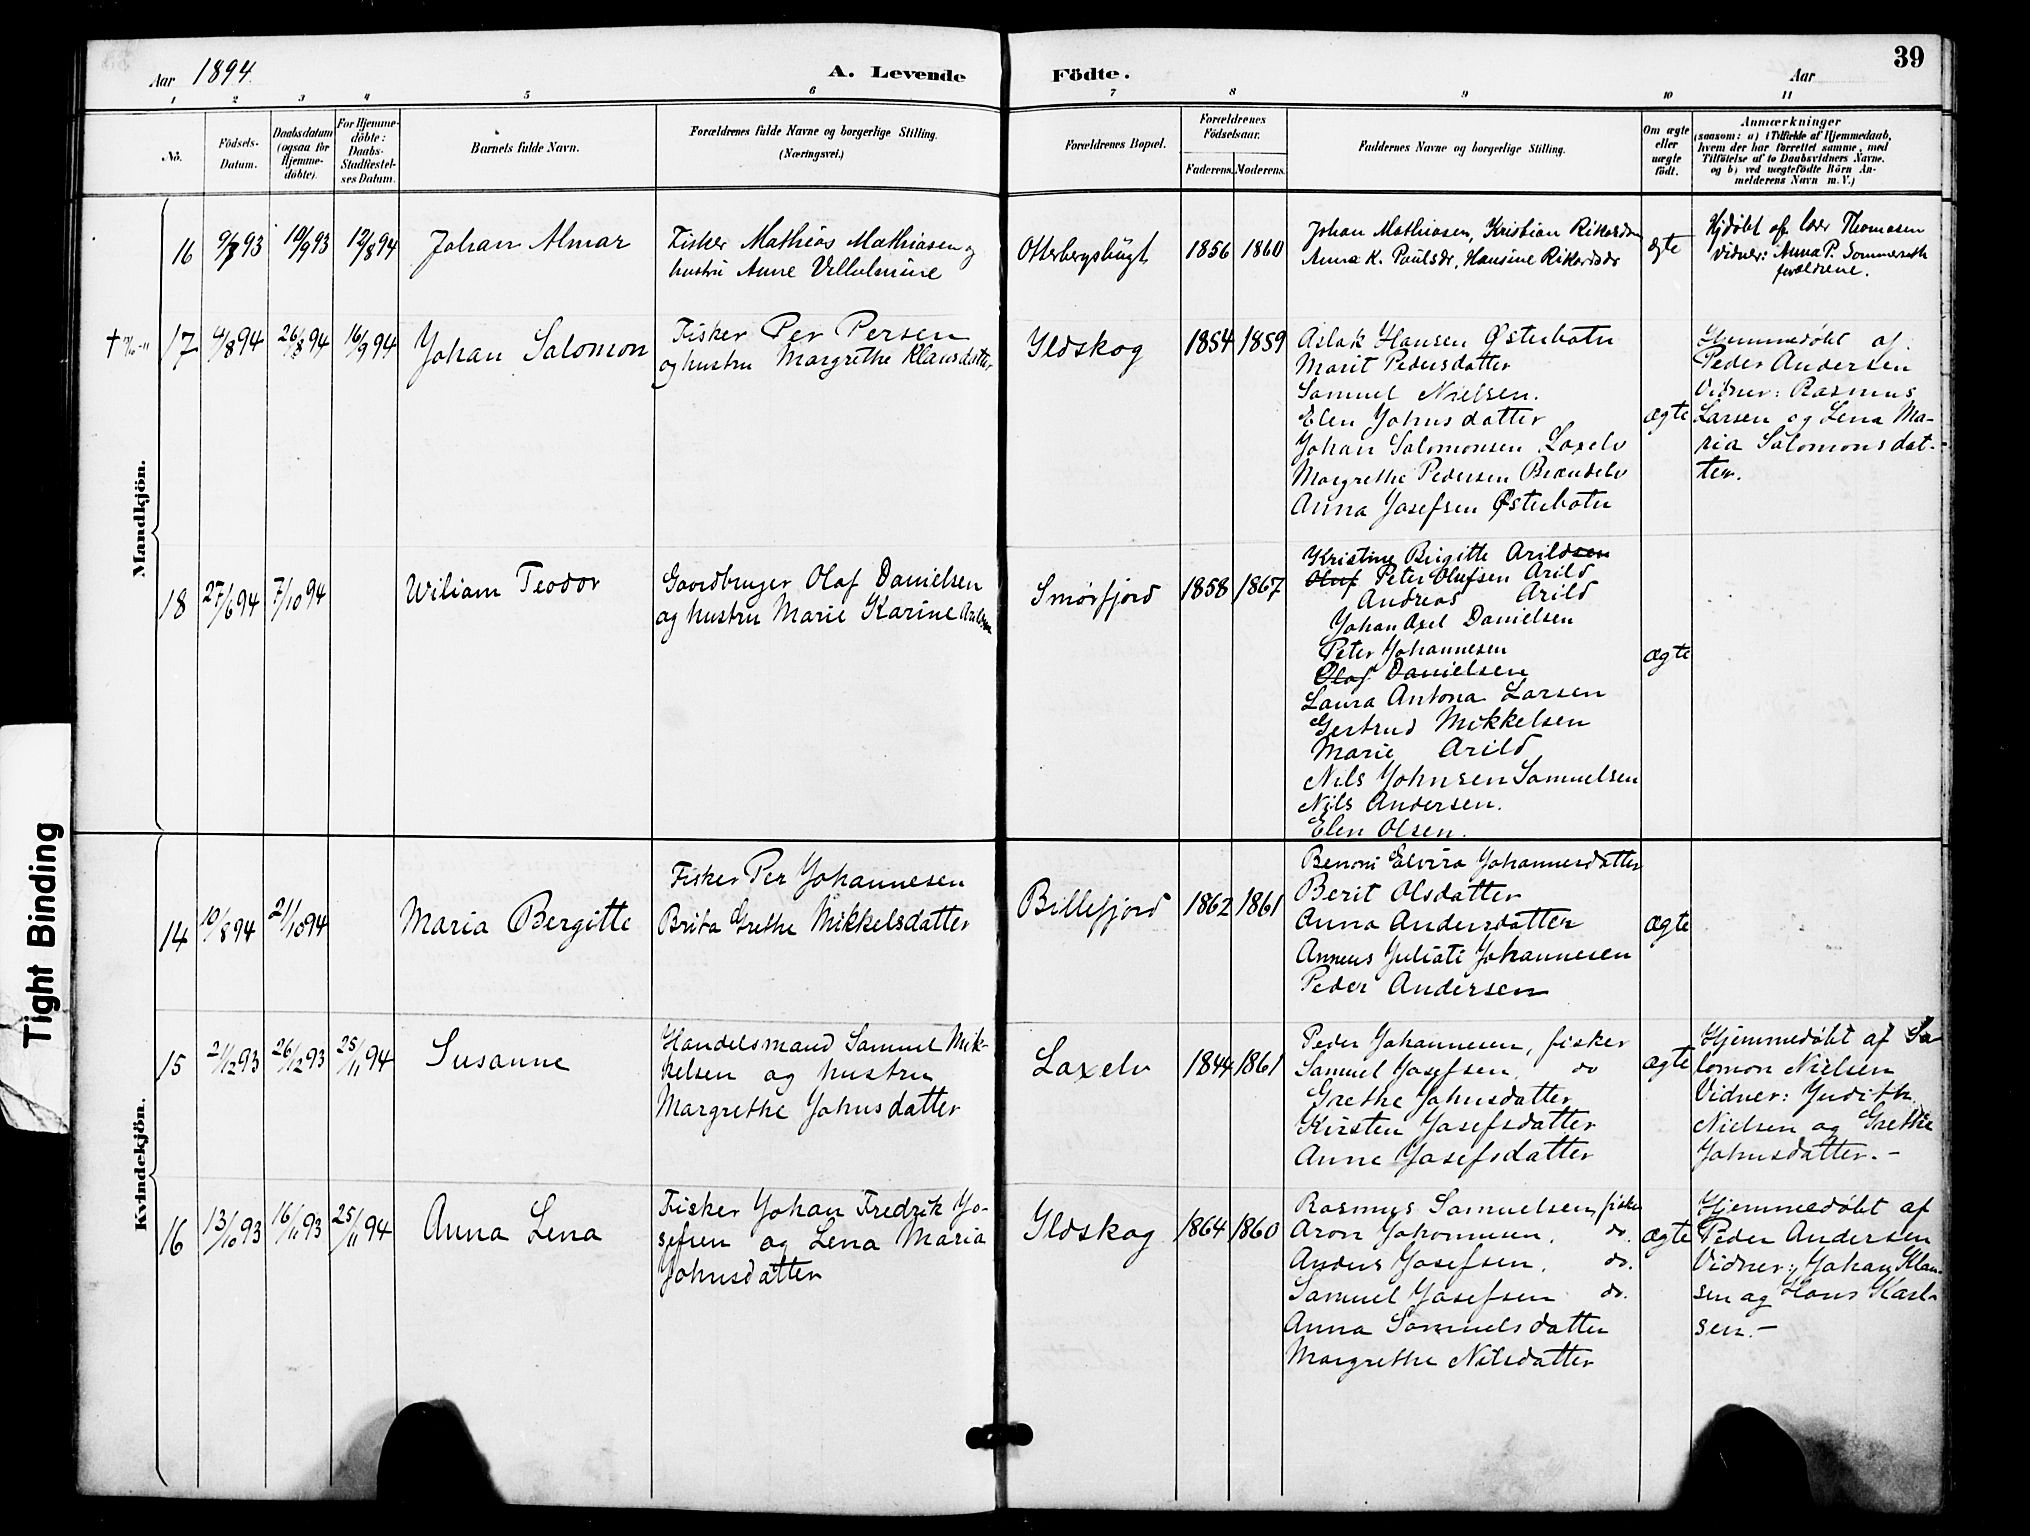 39
Aar 1894. A. Levende Födte. Aar
1 2 3 4 5 6 7 8 9 10 11
Nô.
Födsels-
Datum.
Daabsdatum
(ogsaa for
Hjemme-
döbte).
For Hjemme-
döbte:
Daabs-
Stadfæstel-
ses Datum.
Barnets fulde Navn.
Forældrenes fulde Navne og borgerlige Stilling.
(Næringsvei.)
Forældrenes Bopæl.
Forældrenes
Födselsaar.
Faderens. Moderens.
Faddernes Navne og borgerlige Stilling.
Om ægte
eller
uægte
födt.
Anmærkninger
(saasom: a) i Tilfælde af Hjemmedaab,
hvem der har forrettet samme, med
Tilföielse af to Daabsvidners Navne.
og b) ved uægtefödte Börn An-
melderens Navn m. V.)
Mandkjön.
16 9/7 93 10/9 93 12/8 94 Johan Almar
Fisker Mathias Mathiasen og
hustru Anne Villulmine
Otterbergsbugt 1856 1860
Johan Mathiasen, Kristian Rikardsn
Anna K. Paulsdr, Hansine Rikardsdr
ægte
Hjdøbt af lær Thomasen
vidner: Anna P. Sommerseth
forældrene.
17 4/8 94 26/8 94 16/9 94 Johan Salomon
Fisker Per Persen
og hustru Margrethe Klausdatter
Ildskog 1854 1859
Aslak Hansen Østerbotn
Marit Pedersdatter
Samuel Nielsen.
Elen Johnsdatter
Johan Salomonsen Laxelv
Margrethe Pedersen Brændelv
Anna Josefsen Østerbotn
ægte
Hjemmedøbt af
Peder Andersen
Vidner: Rasmus
Larsen og Lena Ma-
ria Salomonsdat-
ter.
18 27/6 94 7/10 94 Wiliam Teodor
Gaardbruger Olaf Danielsen
og hustru Marie Karine Arildsen
Smørfjord 1858 1867
Kristine Brigitte Arildsen
Oluf Peter Olufsen Arild
Andreas Arild
Johan Axel Danielsen
Peter Johannesen
Olaf Danielsen
Laura Antona Larsen
Gertrud Mikkelsen
Marie Arild
Nils Johnsen Samuelsen
Nils Andersen.
Elen Olsen.
ægte
Kvindekjön.
14 10/8 94 21/10 94 Maria Bergitte
Fisker Per Johannesen
Brita Grethe Mikkelsdatter
Billefjord 1862 1861
Benoni Elvira Johannesdatter
Berit Olsdatter
Anna Andersdatter
Anneus Juliati Johannesen
Peder Andersen
ægte
15 21/12 93 26/12 93 25/11 94 Susanne
Handelsmand Samuel Mik-
kelsen og hustru
Margrethe Johnsdatter
Laxelv 1844 1861
Peder Johannesen, fisker
Samuel Josefsen. do
Grethe Johnsdatter
Kirsten Josefsdatter
Anne Josefsdatter
ægte
Hjemmedøbt af Sa
lomon Nielsen
Vidner: Judith
Nielsen og Grethe
Johnsdatter.-
16 13/10 93 16/11 93 25/11 94 Anna Lena
Fisker Johan Fredrik Jo-
sefsen og Lena Maria
Johnsdatter
Ildskog 1864 1860
Rasmus Samuelsen, fisker
Aron Johannesen. do.
Anders Josefsen. do.
Samuel Josefsen do.
Anna Samuelsdatter
Margrethe Nilsdatter
ægte
Hjemmedøbt af
Peder Andersen
Vidner: Johan Klau-
sen og Hans Karl-
sen.-
Tight Binding